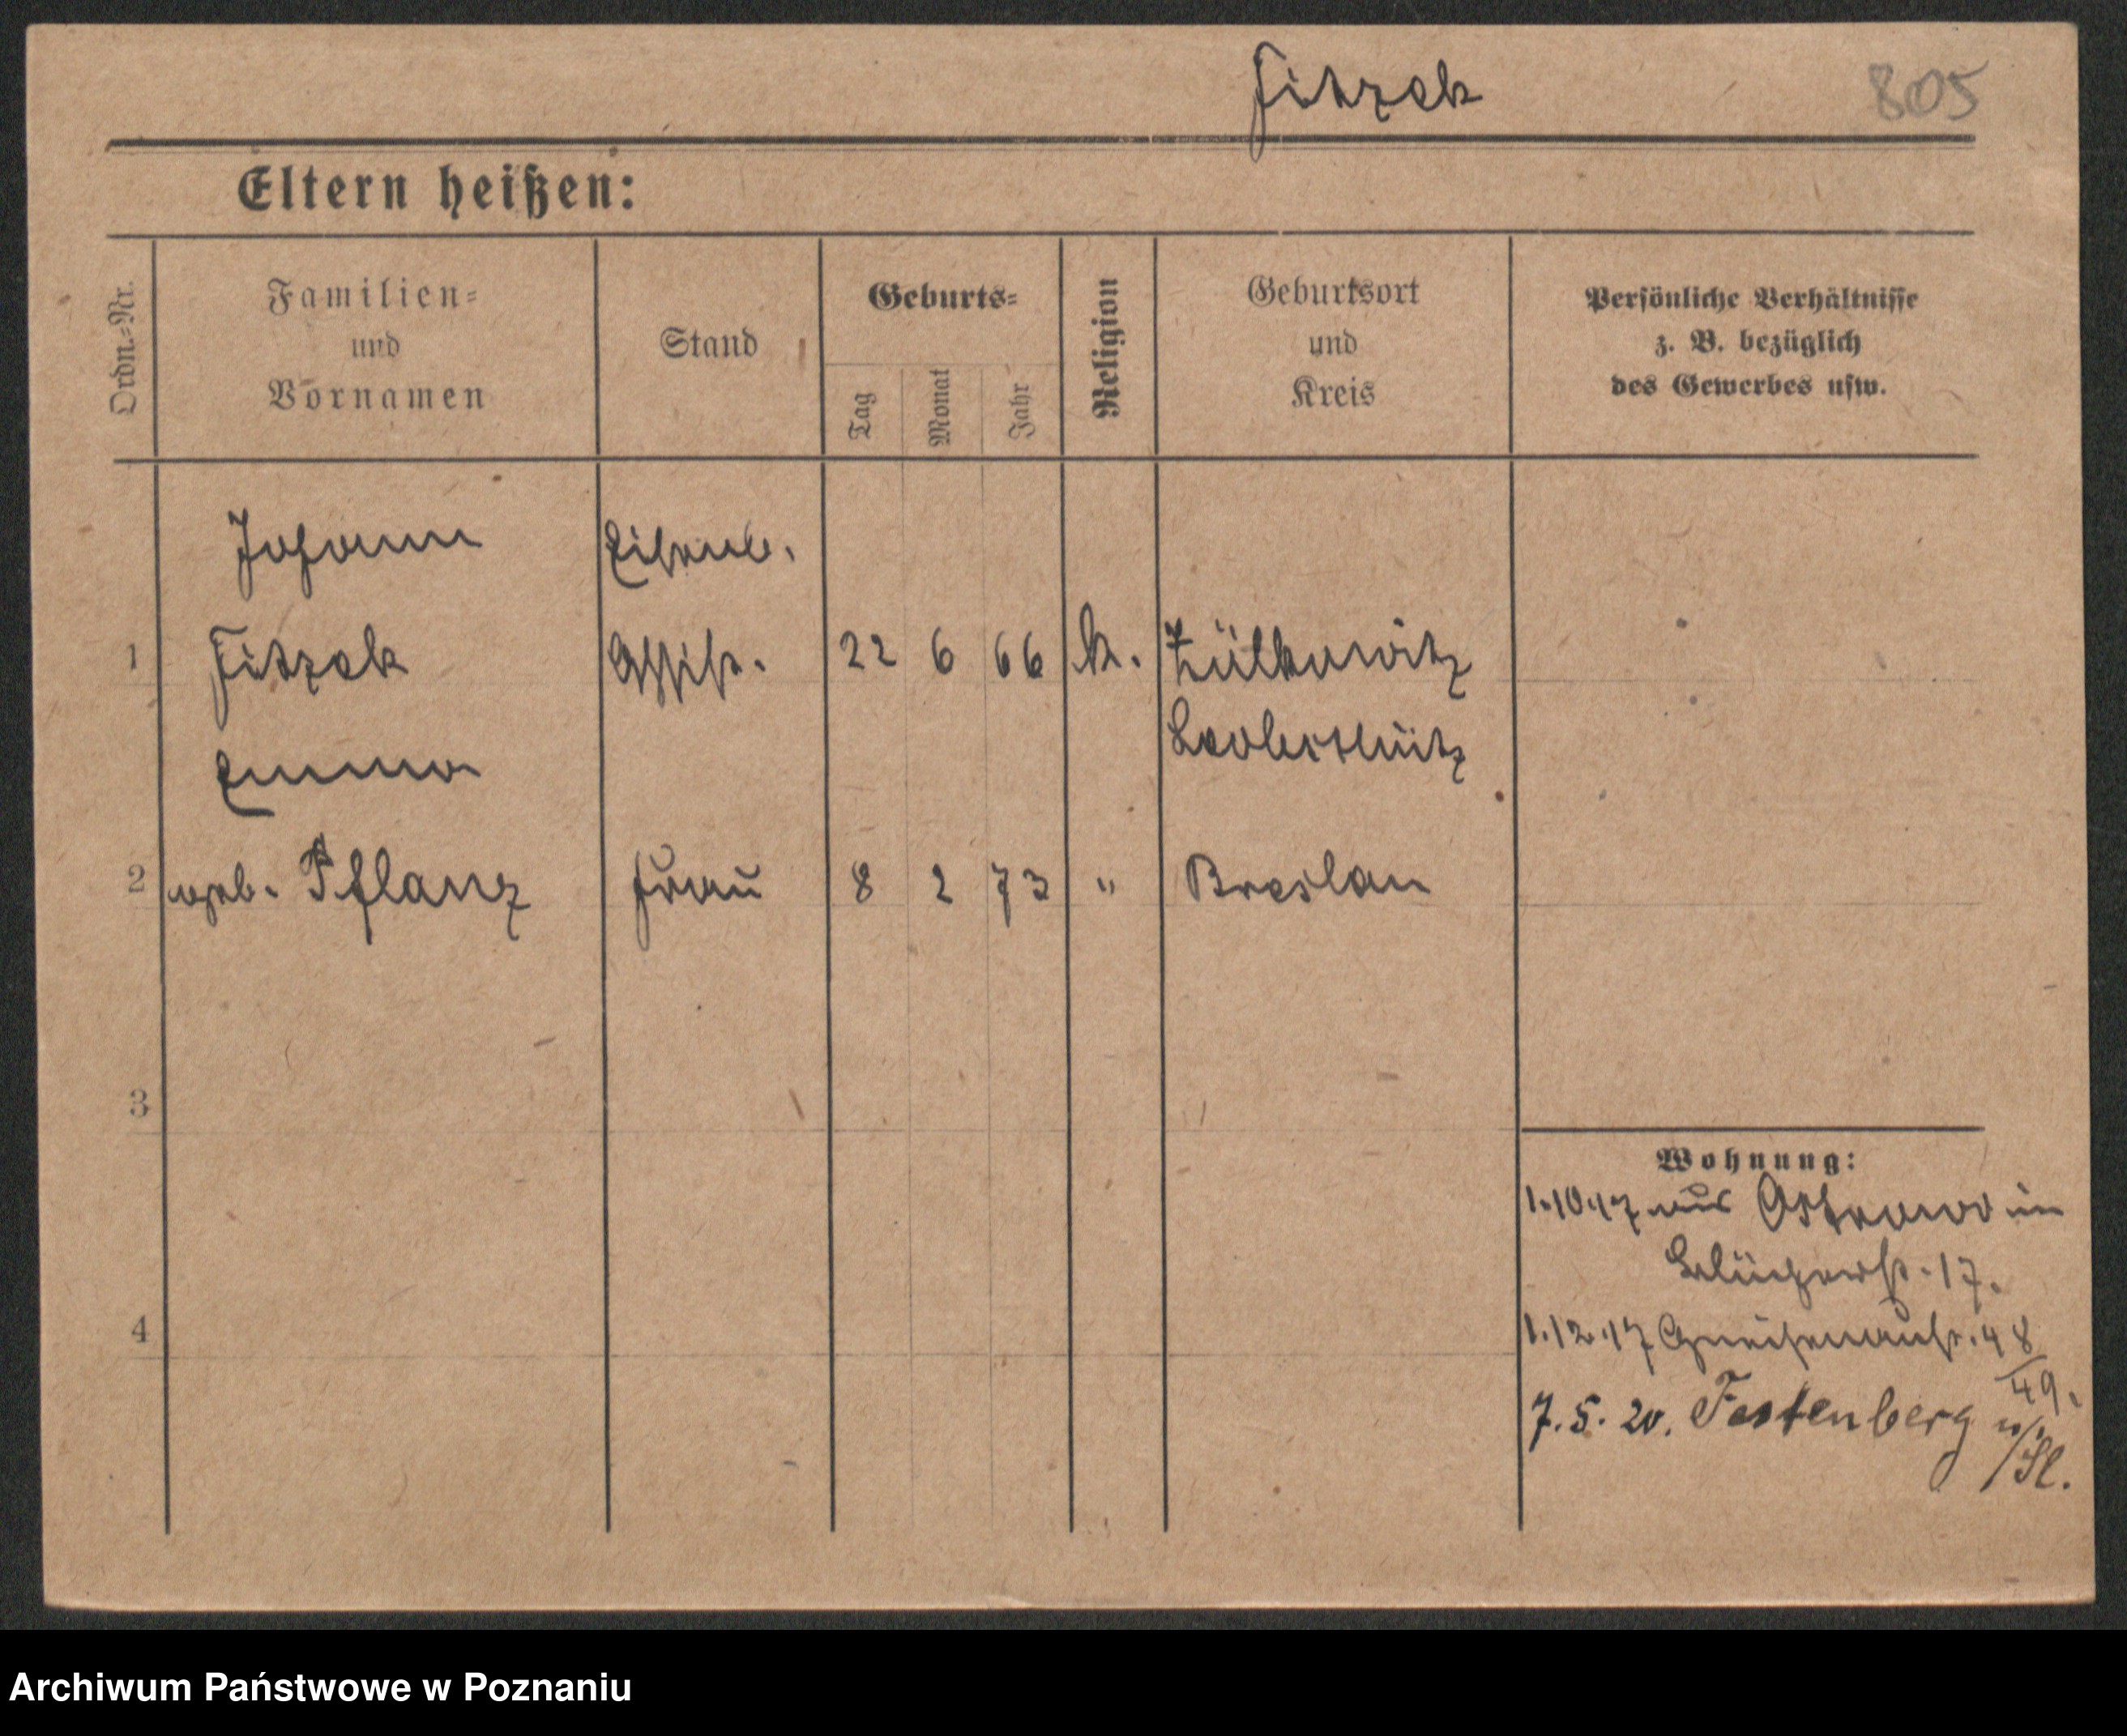 Fitzek 805
Eltern heißen:
Ordn.-Nr.
Familien-
und
Vornamen
Stand
Geburts-
Tag
Monat
Jahr
Religion
Geburtsort
und
Kreis
Persönliche Verhältnisse
z. B. bezüglich
des Gewerbes usw.
Johann Eisenb.
1 Fitzek Assist. 22 6 66 k. Zülkowitz
Leobschütz
Emma
2 geb. Pflanz Frau 8 2 73 " Breslau
3
Wohnung:
1.10.17 aus Ostrowo in
Blücherstr. 17.
4
1.12.17 Gneisenaustr. 48
/49.
7.5.20. Festenberg
/Sl.
Archiwum Państwowe w Poznaniu